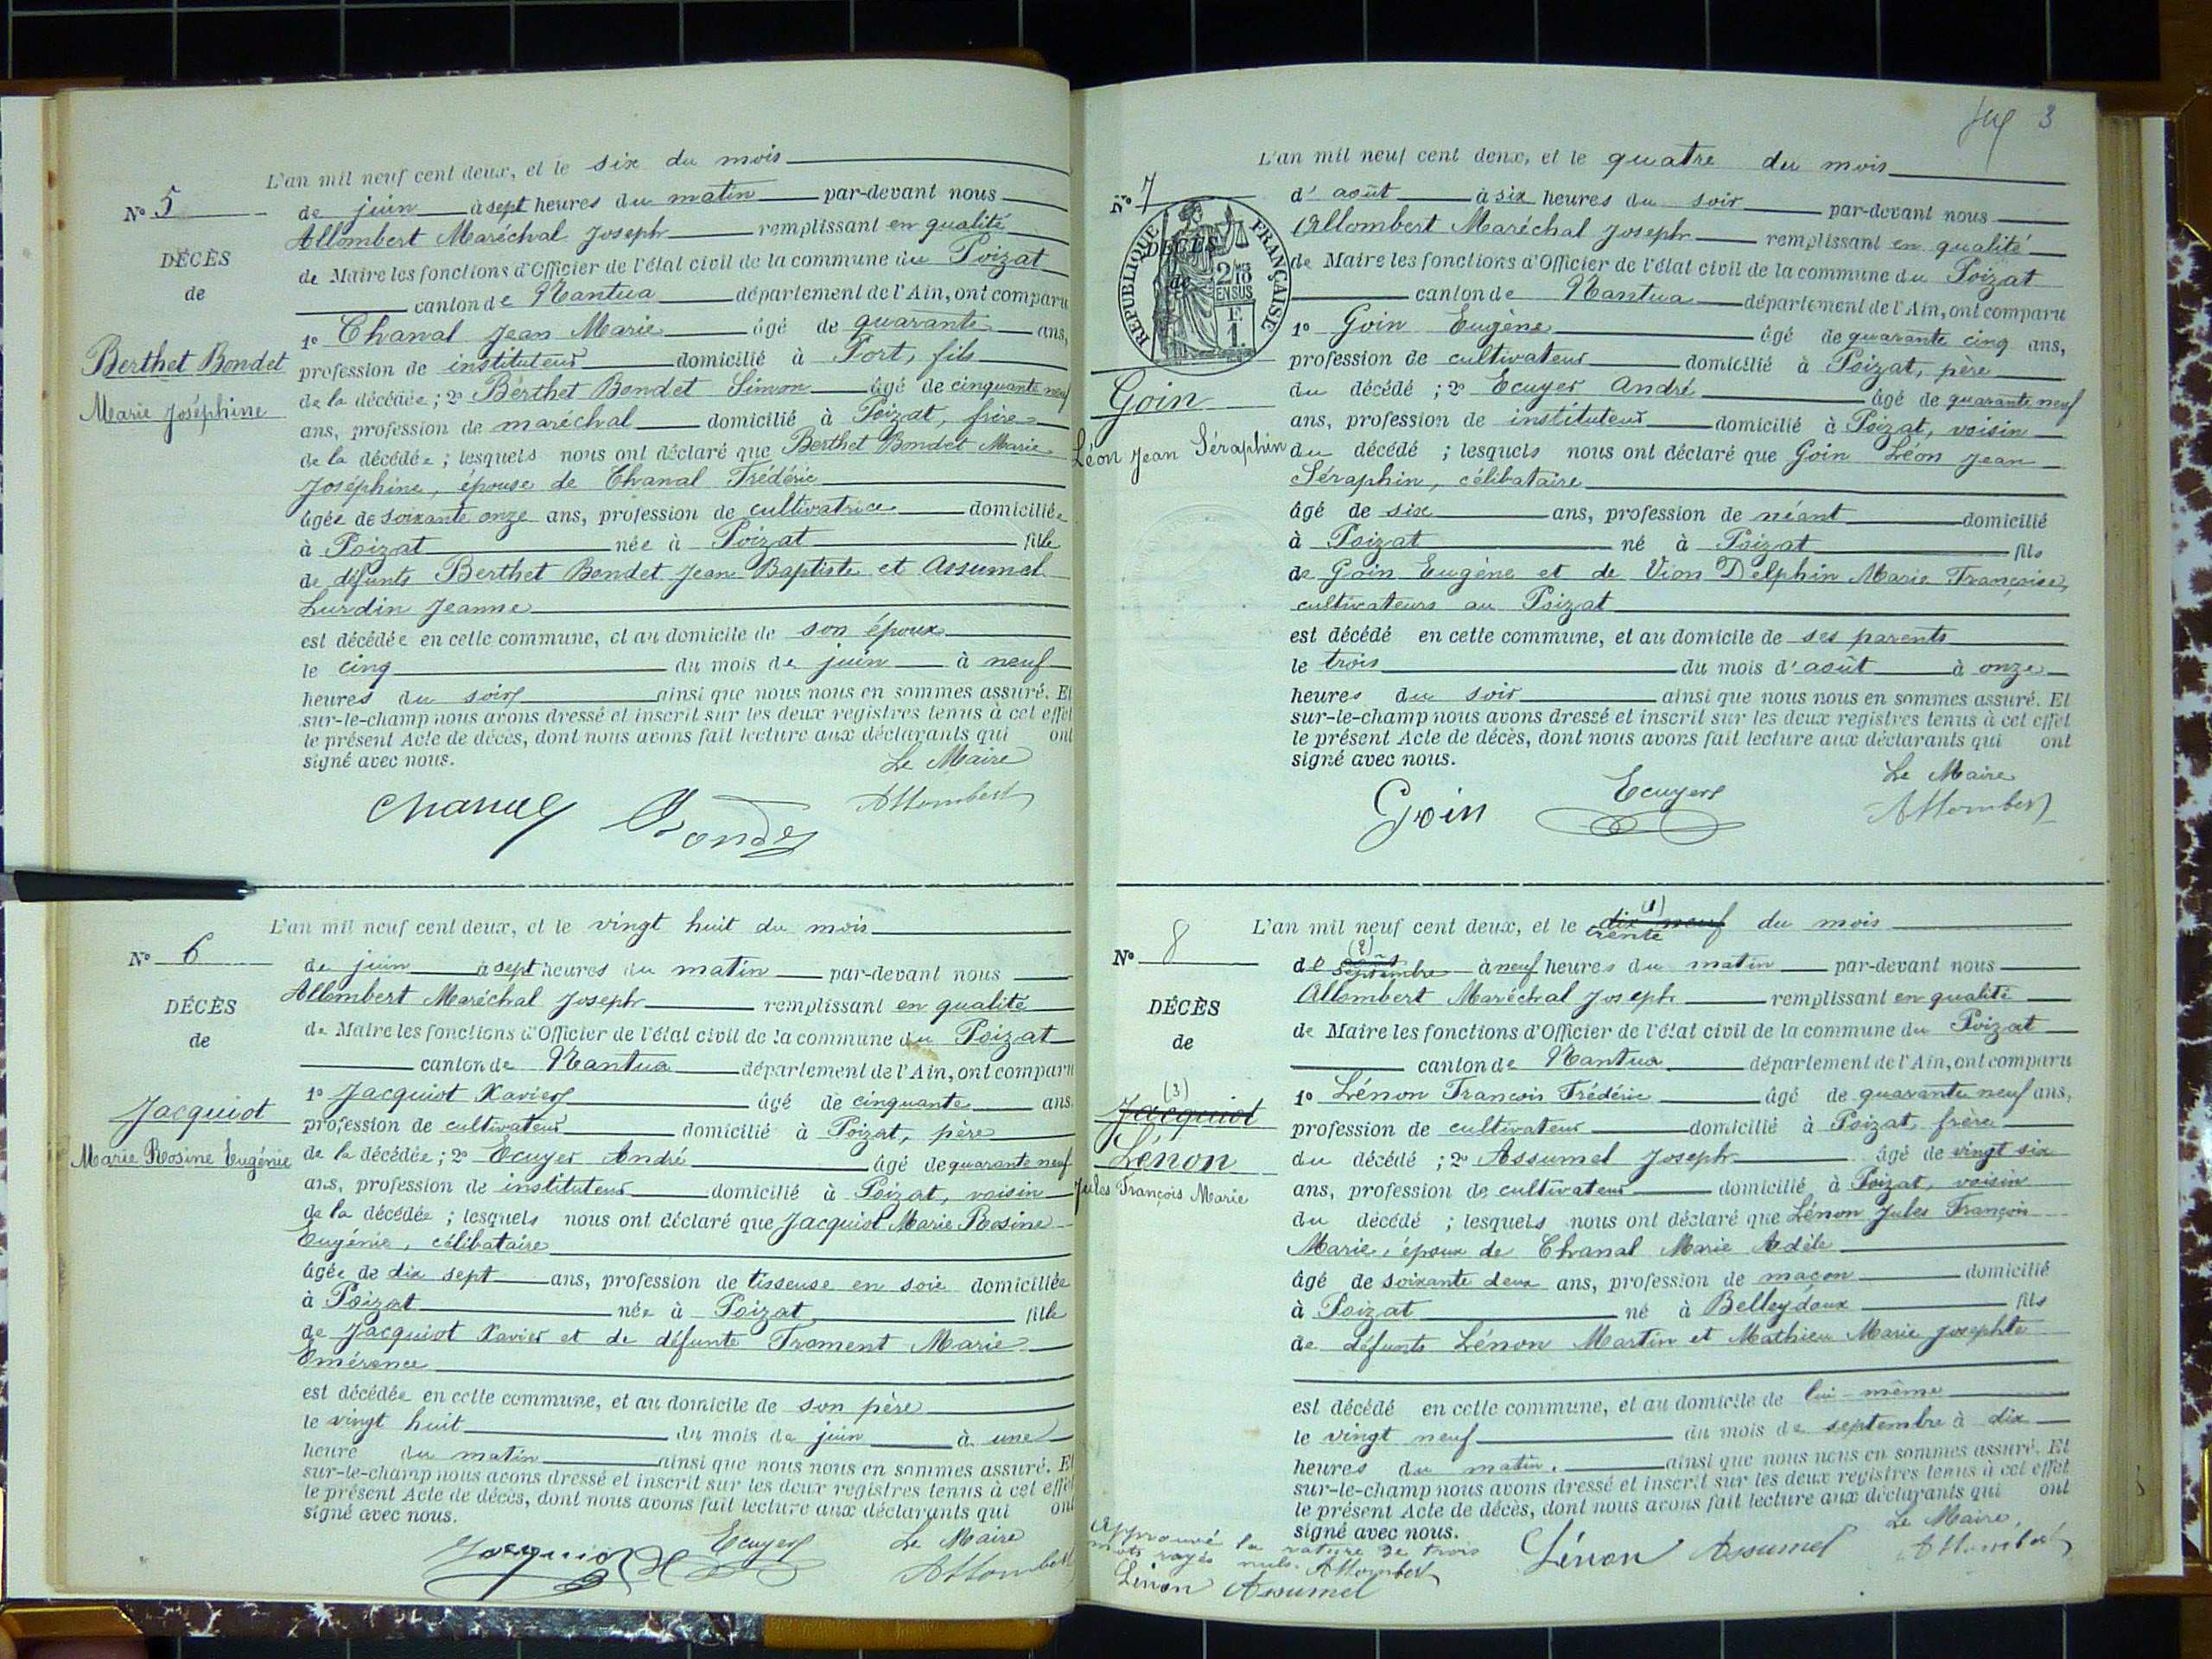 L'an mil neuf cent deux, et le six du mois
N° 5
de juin à sept heures du matin par-devant nous
Allombert Maréchal Joseph remplissant en qualité
DÉCÈS
de Maire les fonctions d'Officier de l'état civil de la commune du Poizat
de
canton de Nantua département de l'Ain, ont comparu
1° Chanal Jean Marie âgé de quarante ans,
Berthet Bondet
profession de instituteur domicilié à Port, fils
de la décédée ; 2° Berthet Bondet Simon âgé de cinquante neuf
Marie Joséphine
ans, profession de maréchal domicilié à Poizat, frère
de la décédée ; lesquels nous ont déclaré que Berthet Bondet Marie
Joséphine, épouse de Chanal Frédéric
âgée de soixante onze ans, profession de cultivatrice domiciliée
à Poizat née à Poizat fille
de défunts Berthet Bondet Jean Baptiste et Assumel
Lurdin Jeanne
est décédée en cette commune, et au domicile de son époux
le cinq du mois de juin à neuf
heures du soir ainsi que nous nous en sommes assuré. Et
sur-le-champ nous avons dressé et inscrit sur les deux registres tenus à cet effet
le présent Acte de décès, dont nous avons fait lecture aux déclarants qui ont
signé avec nous.
Le Maire
Chanal Bondet Allombert
L'an mil neuf cent deux, et le vingt huit du mois
N° 6
de juin à sept heures du matin par-devant nous
Allombert Maréchal Joseph remplissant en qualité
DÉCÈS
de Maire les fonctions d'Officier de l'état civil de la commune du Poizat
de
canton de Nantua département de l'Ain, ont comparu
1° Jacquiot Xavier âgé de cinquante ans
Jacquiot
profession de cultivateur domicilié à Poizat, père
Marie Rosine Eugénie
de la décédée ; 2° Ecuyer André âgé de quarante neuf
ans, profession de instituteur domicilié à Poizat, voisin
de la décédée ; lesquels nous ont déclaré que Jacquiot Marie Rosine
Eugénie, célibataire
âgée de dix sept ans, profession de tisseuse en soie domiciliée
à Poizat née à Poizat fille
de Jacquiot Xavier et de défunte Froment Marie
Omérence
est décédée en cette commune, et au domicile de son père
le vingt huit du mois de juin à une
heure du matin ainsi que nous nous en sommes assuré. Et
sur-le-champ nous avons dressé et inscrit sur les deux registres tenus à cet effet
le présent Acte de décès, dont nous avons fait lecture aux déclarants qui ont
signé avec nous.
Jacquiot X Ecuyer Le Maire
Allombert
3
L'an mil neuf cent deux, et le quatre du mois
N° 7
d'août à six heures du soir par-devant nous
Allombert Maréchal Joseph remplissant en qualité
RÉPUBLIQUE FRANÇAISE
DÉCÈS
de
2/10 EN SUS
F. 1.
de Maire les fonctions d'Officier de l'état civil de la commune du Poizat
canton de Nantua département de l'Ain, ont comparu
1° Goin Eugène âgé de quarante cinq ans,
profession de cultivateur domicilié à Poizat, père
Goin
du décédé ; 2° Ecuyer André âgé de quarante neuf
ans, profession de instituteur domicilié à Poizat, voisin
Léon Jean Séraphin
du décédé ; lesquels nous ont déclaré que Goin Léon Jean
Séraphin, célibataire
âgé de six ans, profession de néant domicilié
à Poizat né à Poizat fils
de Goin Eugène et de Vion Delphin Marie Françoise,
cultivateurs au Poizat
est décédé en cette commune, et au domicile de ses parents
le trois du mois d'août à onze
heures du soir ainsi que nous nous en sommes assuré. Et
sur-le-champ nous avons dressé et inscrit sur les deux registres tenus à cet effet
le présent Acte de décès, dont nous avons fait lecture aux déclarants qui ont
signé avec nous.
Le Maire
Goin Ecuyer Allombert
(1)
L'an mil neuf cent deux, et le dix neuf trente du mois
N° 8
(2)
de août septembre à neuf heures du matin par-devant nous
Allombert Maréchal Joseph remplissant en qualité
DÉCÈS
de Maire les fonctions d'Officier de l'état civil de la commune du Poizat
de
canton de Nantua département de l'Ain, ont comparu
(3)
1° Lénon François Frédéric âgé de quarante neuf ans,
Jacquiot
profession de cultivateur domicilié à Poizat frère
Lénon
du décédé ; 2° Assumel Joseph âgé de vingt six
Jules François Marie
ans, profession de cultivateur domicilié à Poizat, voisin
du décédé ; lesquels nous ont déclaré que Lénon Jules François
Marie, époux de Chanal Marie Adèle
âgé de soixante deux ans, profession de maçon domicilié
à Poizat né à Belleydoux fils
de défunts Lénon Martin et Mathieu Marie Josephte
est décédé en cette commune, et au domicile de lui-même
le vingt neuf du mois de septembre à dix
heures du matin. ainsi que nous nous en sommes assuré. Et
sur-le-champ nous avons dressé et inscrit sur les deux registres tenus à cet effet
le présent Acte de décès, dont nous avons fait lecture aux déclarants qui ont
signé avec nous.
Le Maire,
Lénon Assumel Allombert
Approuvé la rature de trois
mots rayés nuls. Allombert
Lénon Assumel